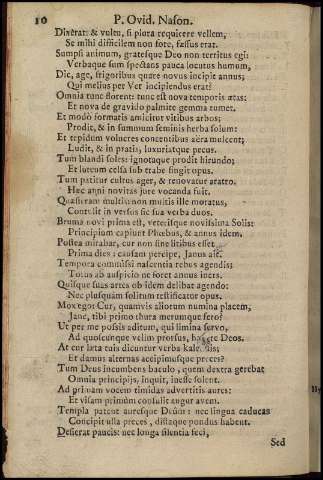 10 P. Ovid. Nason.
Dixerat: & vultu, si plura requirere vellem,
Se mihi difficilem non fore, fassus erat.
Sumpsi animum, gratesque Deo non territus egi:
Verbaque sum spectans pauca locutus humum,
Dic, age, frigoribus quare novus incipit annus;
Qui melius per Ver incipiendus erat?
Omnia tunc florent: tunc est nova temporis ætas:
Et nova de gravido palmite gemma tumet.
Et modò formatis amicitur vitibus arbos:
Prodit, & in summum seminis herba solum:
Et tepidum volucres concentibus aëra mulcent;
Ludit, & in pratis, luxuriatque pecus.
Tum blandi soles: ignotaque prodit hirundo;
Et luteum celsa sub trabe fingit opus.
Tum patitur cultus ager, & renovatur aratro.
Hæc anni novitas jure vocanda fuit.
Quæsieram multis: non multis ille moratus,
Contulit in versus sic sua verba duos.
Bruma novi prima est, veterisque novissima Solis:
Principium capiunt Phœbus, & annus idem.
Postea mirabar, cur non sine litibus esset
Prima dies: causam percipe, Janus ait.
Tempora commisi nascentia rebus agendis;
Totus ab auspicio ne foret annus iners.
Quisque suas artes ob idem delibat agendo:
Nec plusquam solitum testificatur opus.
Mox ego: Cur, quamvis aliorum numina placem,
Jane, tibi primo thura merumque fero?
Ut per me possis aditum, qui limina servo,
Ad quoscunque velim prorsus, habere Deos.
At cur læta tuis dicuntur verba kalendis;
Et damus alternas accipimusque preces?
Tum Deus incumbens baculo, quem dextra gerebat
Omnia principiis, inquit, inesse solent.
Ad primam vocem timidas advertitis aures:
Et visam primùm consulit augur avem.
Templa patent auresque Deûm: nec lingua caducas
Concipit ulla preces, dictaque pondus habent.
Desierat paucis: nec longa silentia feci,
Sed